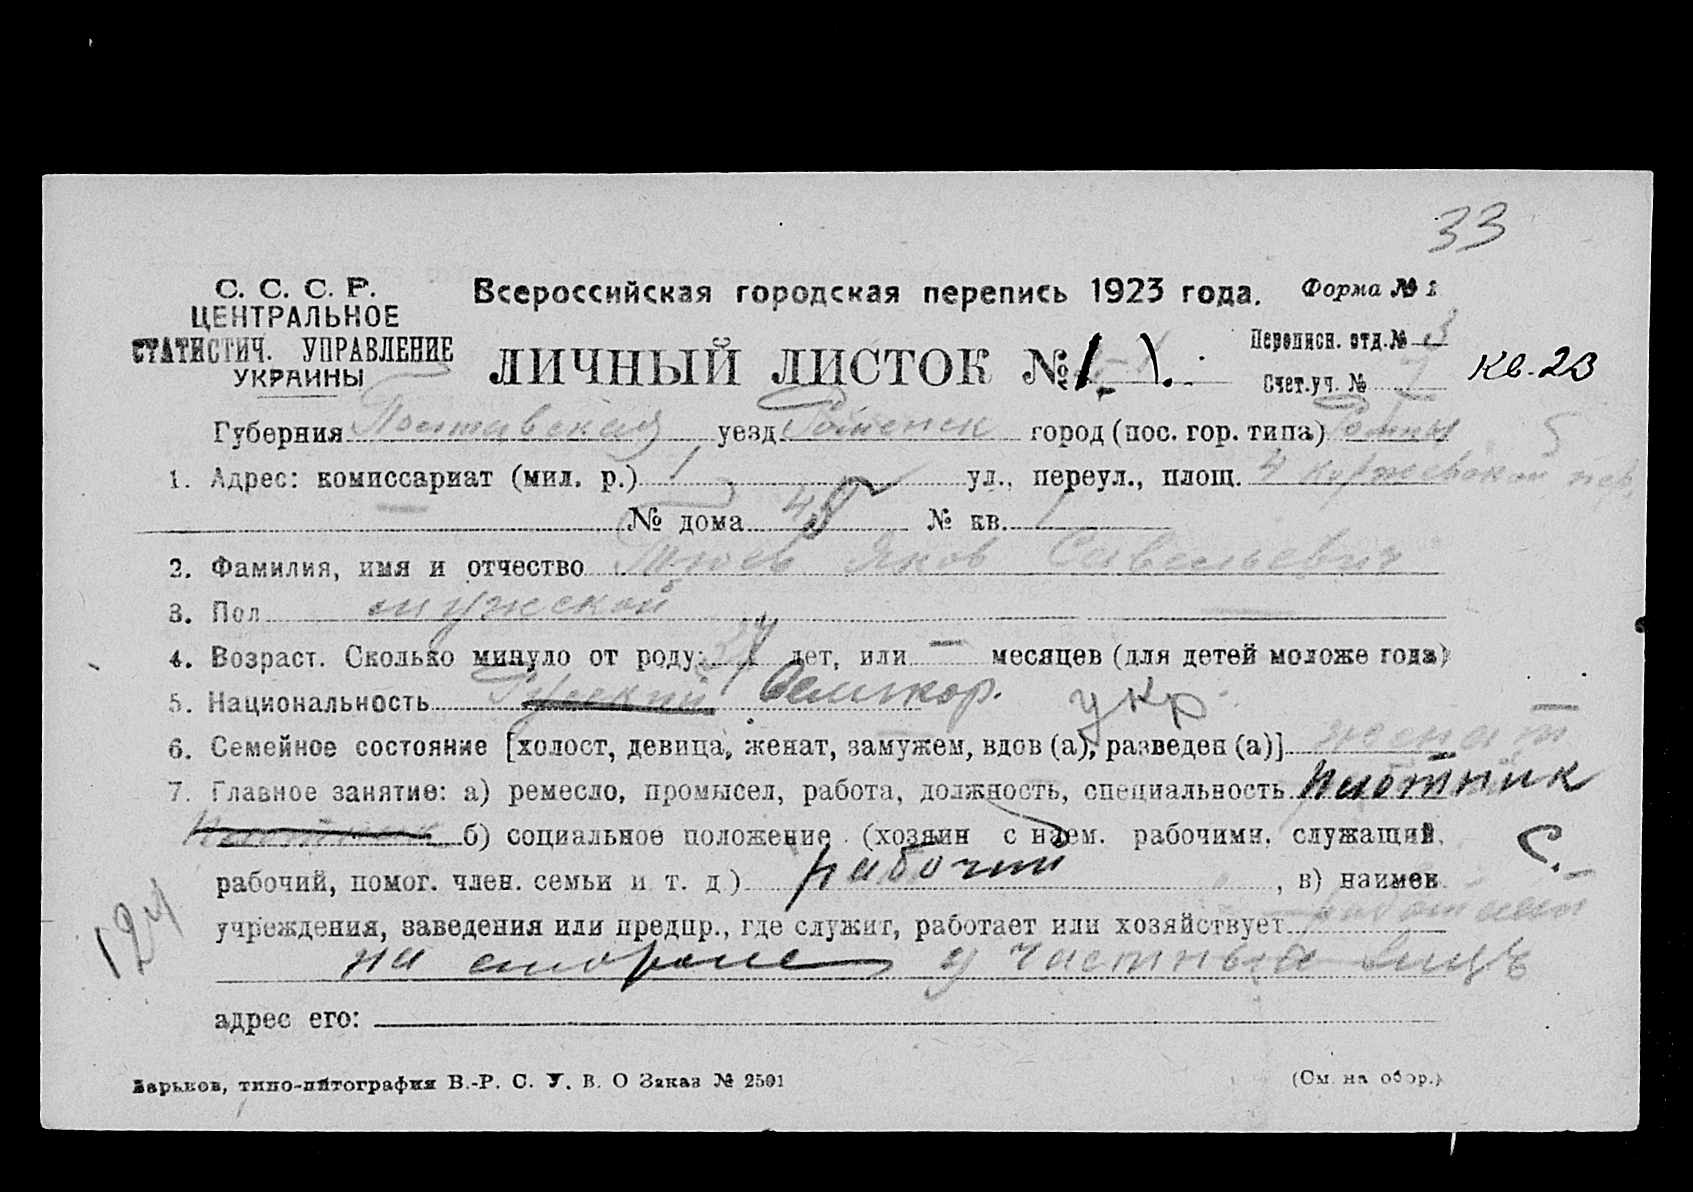 33
С. С. С. Р.
ЦЕНТРАЛЬНОЕ
СТАТИСТИЧ. УПРАВЛЕНИЕ
УКРАИНЫ
Всероссийская городская перепись 1923 года.
Форма № 1
ЛИЧНЫЙ ЛИСТОК №
Переписн. отд. № 3
Счет. уч. № 7
кв. 23
Губерния Полтавская уезд Роменск город (пос. гор. типа) Ромны
1. Адрес: комиссариат (мил. р.) 1 ул., переул., площ. 4 Куржевской пер.
№ дома № кв. 1
2. Фамилия, имя и отчество Яков Савельевич
3. Пол мужской
4. Возраст. Сколько минуло от роду: лет, или — месяцев (для детей моложе года)
5. Национальность Русский Великор. укр
6. Семейное состояние [холост, девица, женат, замужем, вдов (а), разведен (а)] женат
7. Главное занятие: а) ремесло, промысел, работа, должность, специальность плотник
плотник б) социальное положение (хозяин с наем. рабочими, служащий,
рабочий, помог. член. семьи и т. д.) рабочий, в) наимен.
С.
учреждения, заведения или предпр., где служит, работает или хозяйствует
124
на стороне у частных лицъ
адрес его:
Харьков, типо-литография В.-Р. С. У. В. О Заказ № 2591
(См. на обор.)